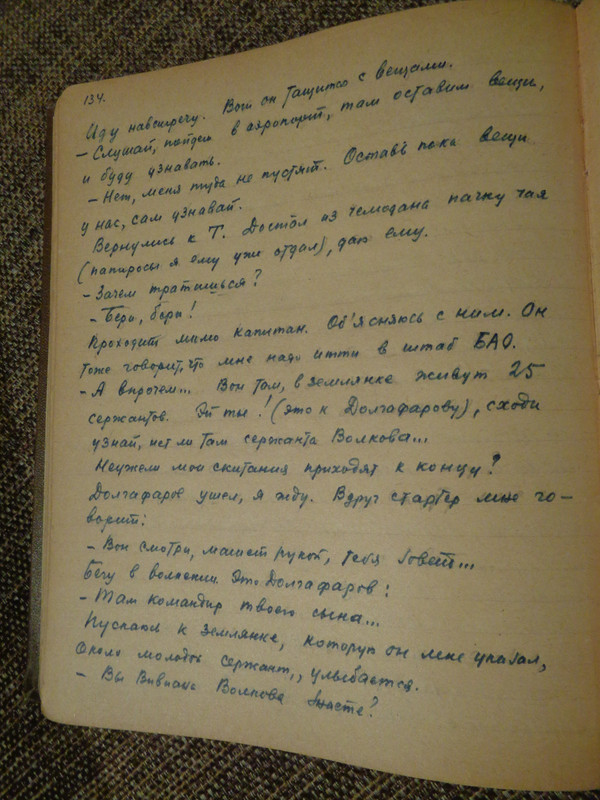 134.
Иду навстречу. Вот он тащится с вещами.
— Слушай, пойдем в аэропорт, там оставим вещи,
и буду узнавать.
— Нет, меня туда не пустят. Оставь пока вещи
у нас, сам узнавай.
Вернулись к Т. Достал из чемодана пачку чая
(папиросы я ему уже отдал), даю ему.
— Зачем тратишься?
— Бери, бери!
Проходит мимо капитан. Об'ясняюсь с ним. Он
тоже говорит, что мне надо итти в штаб БАО.
— А впрочем... Вон там, в землянке живут 25
сержантов. Эй ты! (это к Долгафарову), сходи
узнай, нет ли там сержанта Волкова...
Неужели мои скитания приходят к концу?
Долгафаров ушел, я жду. Вдруг стартер мне го-
ворит:
— Вон смотри, машет рукой, тебя зовет...
Бегу в волнении. Это Долгафаров:
— Там командир твоего сына...
Пускаюсь к землянке, которую он мне указал,
Около молодой сержант, улыбается.
— Вы Вивиана Волкова знаете?